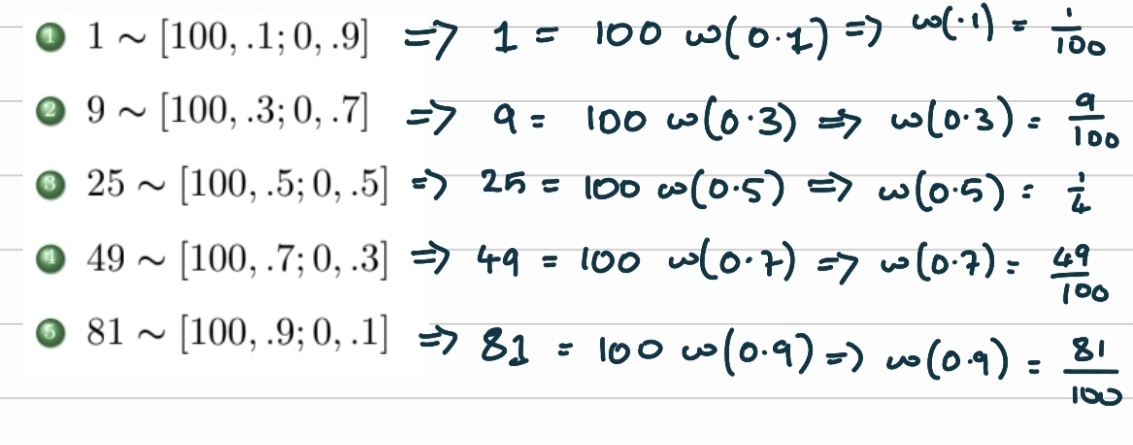 1 1 ∼ [100, .1; 0, .9] => 1 = 100 ω(0.1) => ω(.1) = 1/100
2 9 ∼ [100, .3; 0, .7] => 9 = 100 ω(0.3) => ω(0.3) = 9/100
3 25 ∼ [100, .5; 0, .5] => 25 = 100 ω(0.5) => ω(0.5) = 1/4
4 49 ∼ [100, .7; 0, .3] => 49 = 100 ω(0.7) => ω(0.7) = 49/100
5 81 ∼ [100, .9; 0, .1] => 81 = 100 ω(0.9) => ω(0.9) = 81/100